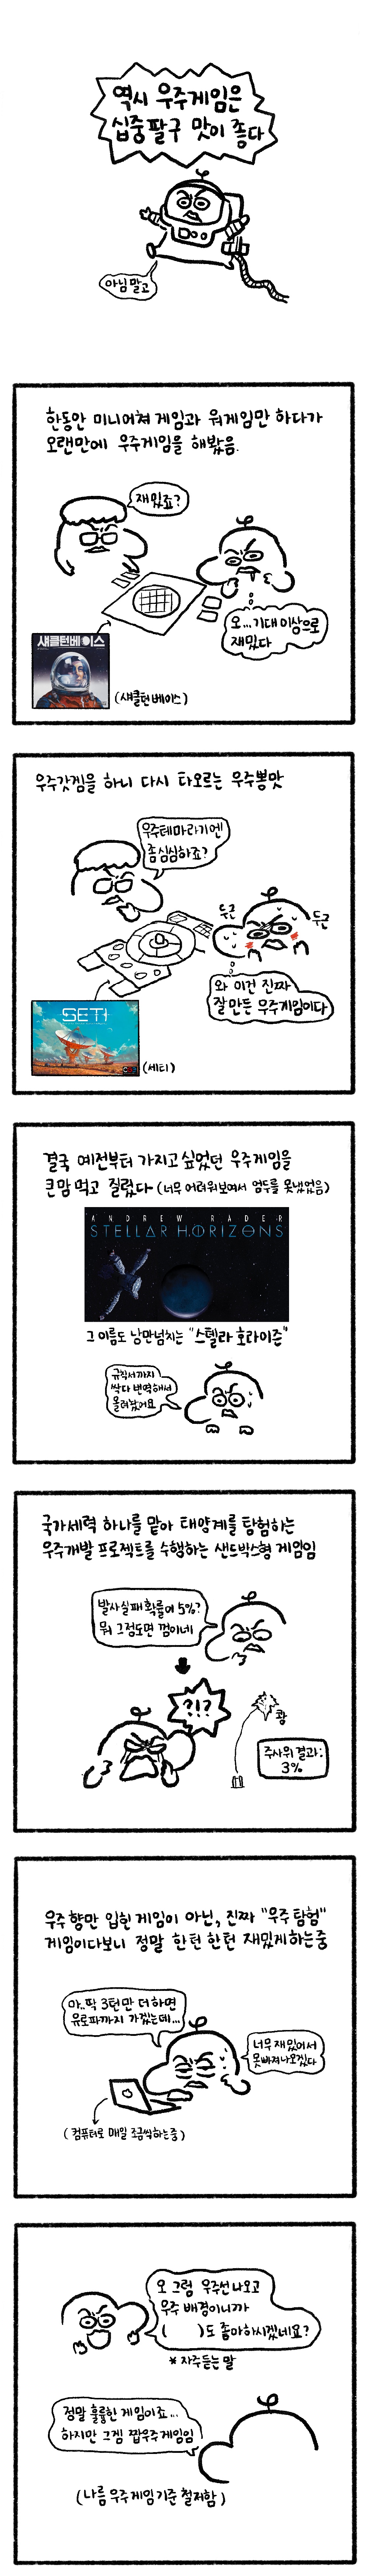 역시 우주게임은
십중팔구 맛이 좋다
아님말고
한동안 미니어쳐 게임과 워게임만 하다가
오랜만에 우주게임을 해봤음.
재밌죠?
오...기대 이상으로
재밌다
섀클턴베이스
(섀클턴 베이스)
우주갓겜을 하니 다시 타오르는 우주뽕맛
우주테마라기엔
좀 심심하죠?
두근
두근
와 이건 진짜
잘 만든 우주게임이다
SETI
(세티)
결국 예전부터 가지고 싶었던 우주게임을
큰맘 먹고 질렀다 (너무 어려워보여서 엄두를 못냈었음)
ANDREW RADER
STELLAR HORIZONS
그 이름도 낭만넘치는 "스텔라 호라이즌"
규칙서까지
싹다 번역해서
올려놨어요
국가세력 하나를 맡아 태양계를 탐험하는
우주개발 프로젝트를 수행하는 샌드박스형 게임임
발사실패 확률이 5%?
뭐 그정도면 껌이네
?!?
쾅
주사위 결과:
3%
우주향만 입힌 게임이 아닌, 진짜 "우주 탐험"
게임이다보니 정말 한턴 한턴 재밌게하는중
아..딱 3턴만 더하면
유로파까지 가겠는데...
너무 재밌어서
못빠져나오겠다
(컴퓨터로 매일 조금씩하는중)
오 그럼 우주선 나오고
우주 배경이니까
( )도 좋아하시겠네요?
* 자주듣는 말
정말 훌륭한 게임이죠...
하지만 그겜 짭우주게임임
(나름 우주게임기준 철저함)